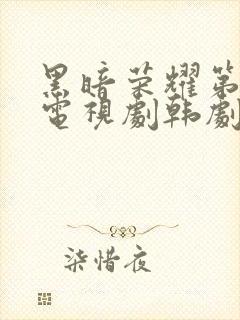 黑暗荣耀第
電視劇韩劇
柒惜夜